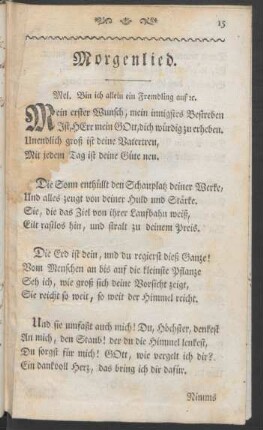 15
Morgenlied.
Mel. Bin ich allein ein Fremdling auf ꝛc.
Mein erster Wunsch, mein innigstes Bestreben
Ist, HErr mein GOtt, dich würdig zu erheben.
Unendlich groß ist deine Vatertreu,
Mit jedem Tag ist deine Güte neu.
Die Sonn enthüllt den Schauplatz deiner Werke,
Und alles zeugt von deiner Huld und Stärke.
Sie, die das Ziel von ihrer Laufbahn weiß,
Eilt rastlos hin, und stralt zu deinem Preis.
Die Erd ist dein, und du regierst dieß Ganze!
Vom Menschen an bis auf die kleinste Pflanze
Seh ich, wie groß sich deine Vorsicht zeigt,
Sie reicht so weit, so weit der Himmel reicht.
Und sie umfaßt auch mich! Du, Höchster, denkest
An mich, den Staub! der du die Himmel lenkest,
Du sorgst für mich! GOtt, wie vergelt ich dir?
Ein dankvoll Herz, das bring ich dir dafür.
Nimms